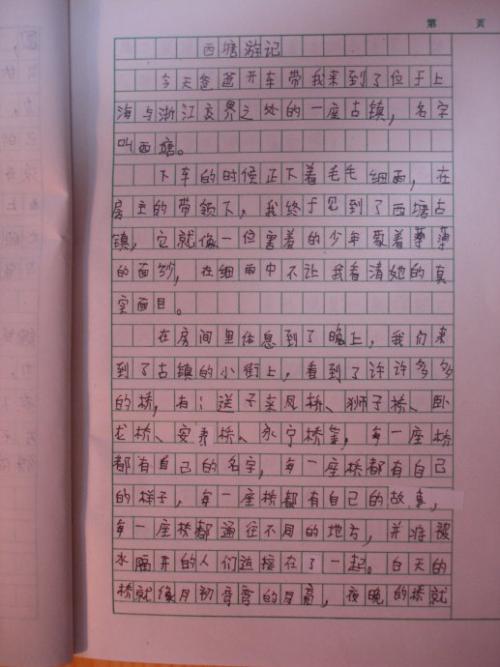 第 页
西塘游记
今天爸爸开车带我来到了位于上
海与浙江交界之处的一座古镇，名字
叫西塘。
下车的时候正下着毛毛细雨，在
房主的带领下，我终于见到了西塘古
镇，它就像一位害羞的少年蒙着薄薄
的面纱，在细雨中不让我看清她的真
实面目。
在房间里休息到了晚上，我们来
到了古镇的小街上，看到了许许多多
的桥，有：送子来凤桥、狮子桥、卧
龙桥、安泰桥、永宁桥等，每一座桥
都有自己的名字，每一座桥都有自己
的样子，每一座桥都有自己的故事，
每一座桥都通往不同的地方，并将被
水隔开的人们连接在了一起。白天的
桥就像月初弯弯的月亮，夜晚的桥就